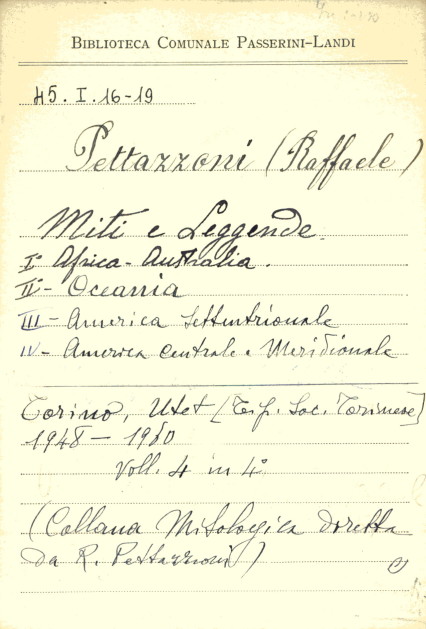 BIBLIOTECA COMUNALE PASSERINI-LANDI
45. I. 16-19
Pettazzoni (Raffaele)
Miti e Leggende.
I° Africa - Australia.
II° - Oceania
III - America Settentrionale
IV - America Centrale e Meridionale
Torino, Utet [Tip. Soc. Torinese]
1948 - 1960
Voll. 4 in 4°
(Collana Mitologica diretta
da R. Pettazzoni)